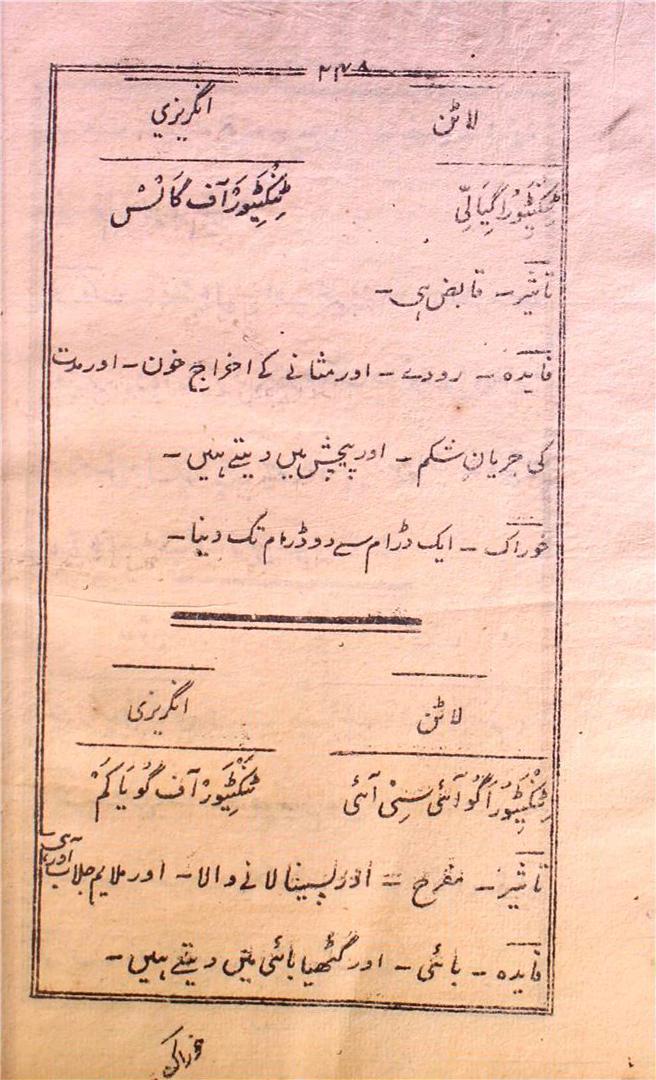 ۲۴۸
لاٹن انگریزي
ٹنکٹیورا گیالِی ٹِنکٹیورْ آف گالْسْ
تاثیر ـ قابض ہی ـ
فایدہ ـ رودے ـ اور مثانے کے اخراج خون ـ اور مدت
کی جریانِ شکم ـ اور پیچش میں دیتے ہیں ـ
خوراک ـ ایک ڈرام سے دو ڈرام تک دینا ـ
لاٹن انگریزی
ٹِنکٹیورَا گوآئی سِنی آئی ٹِنکٹیورْ آف گویاکم
تاثیر ـ مفرح = اور پسینا لانے والا ـ اور ملایم جلاب آور ہی ـ
فایدہ ـ بائی ـ اور گٹھیا بائی میں دیتے ہیں ـ
خوراک